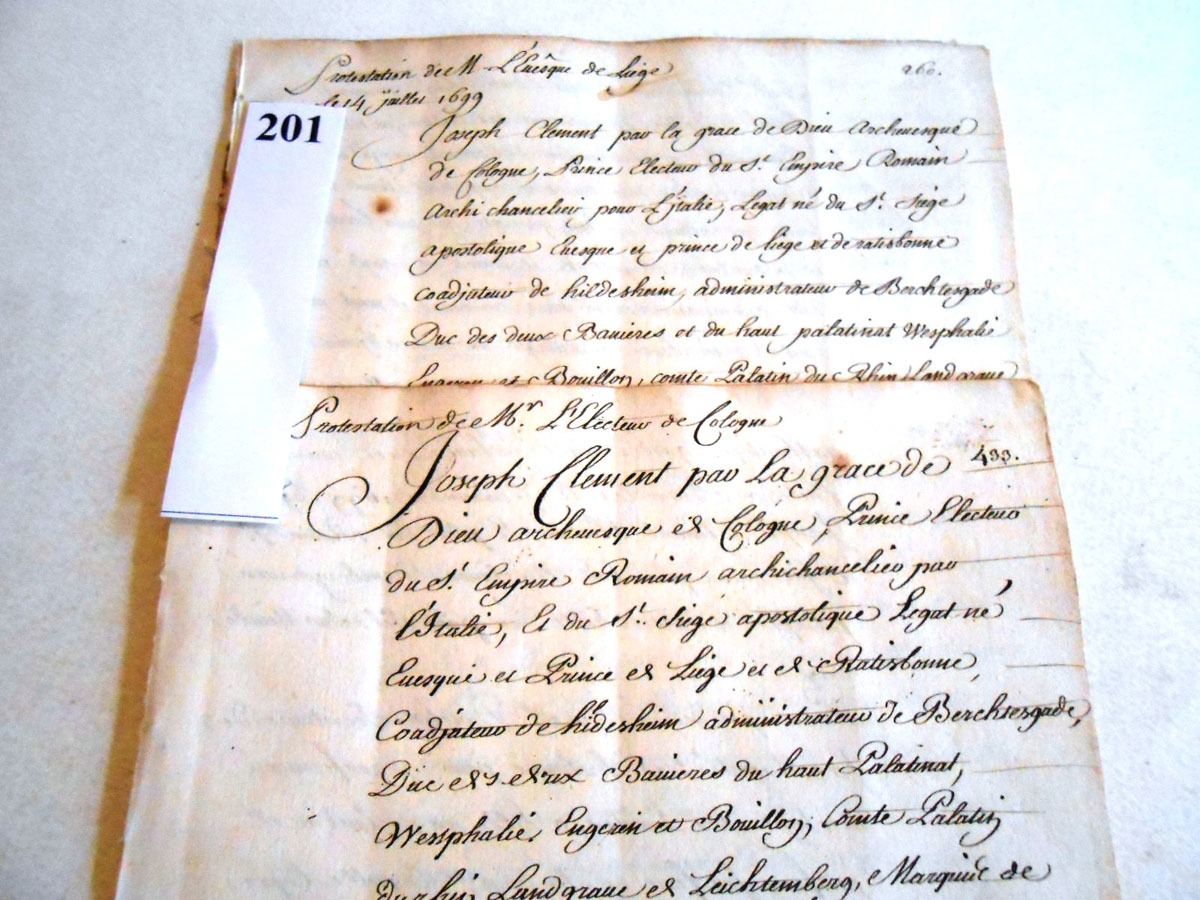 Protestation de M L'Evêque de Liége
260.
le 14 juillet 1699
201
Joseph Clement par la grace de Dieu Archeuesque
de Cologne, Prince Electeur du St. Empire Romain
Archichancelier pour L'Jtalie, Legat né du St. Siége
apostolique Euesque et prince de liege et de ratisbonne
coadjuteur de hildesheim, administrateur de Berchtesgade
Duc des deux Bauieres et du haut palatinat Westphalie
Engeren et Bouillon, comte Palatin du Rhin Landgraue
Protestation de Mr. L'Electeur de Cologne
433.
Joseph Clement par La grace de
Dieu archeuesque de Cologne, Prince Electeur
du St. Empire Romain archichancelier par
l'Italie, Et du St. siége apostolique Legat né
Euesque et Prince de Liége et de Ratisbonne,
Coadjuteur de hildesheim administrateur de Berchtesgade,
Duc des deux Bauieres du haut Palatinat,
Westphalie, Engeren et Bouillon, Comte Palatin
du rhin Landgraue de Leichtemberg, Marquis de